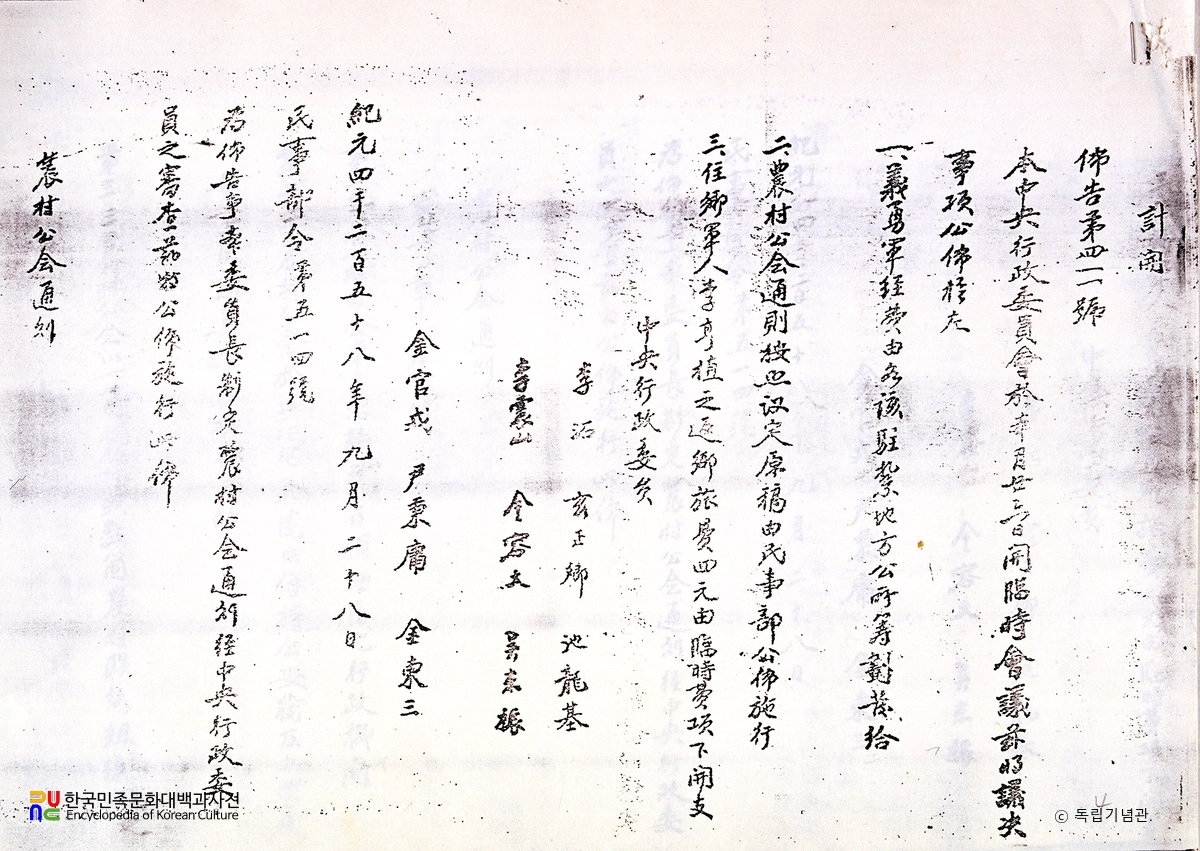 計開
佈告第四一號
本中央行政委員會於本月廿三日開臨時會議茲將議決
事項公佈於左
一、義勇軍經費由各該駐紮地方公所籌劃發給
二、農村公会通則按照议定原稿由民事部公佈施行
三、住鄉軍人李亨植之返鄉旅費四元由臨時費項下開支
中央行政委員
李沰 玄正卿 池龍基
李震山 金容大 吳東振
金宮戎 尹秉庸 金東三
紀元四千二百五十八年九月二十八日
民事部令第五一四號
為佈告事本委員長制定農村公会通則經中央行政委
員之審査茲特公佈施行此佈
農村公会通則
한국민족문화대백과사전
Encyclopedia of Korean Culture
© 독립기념관